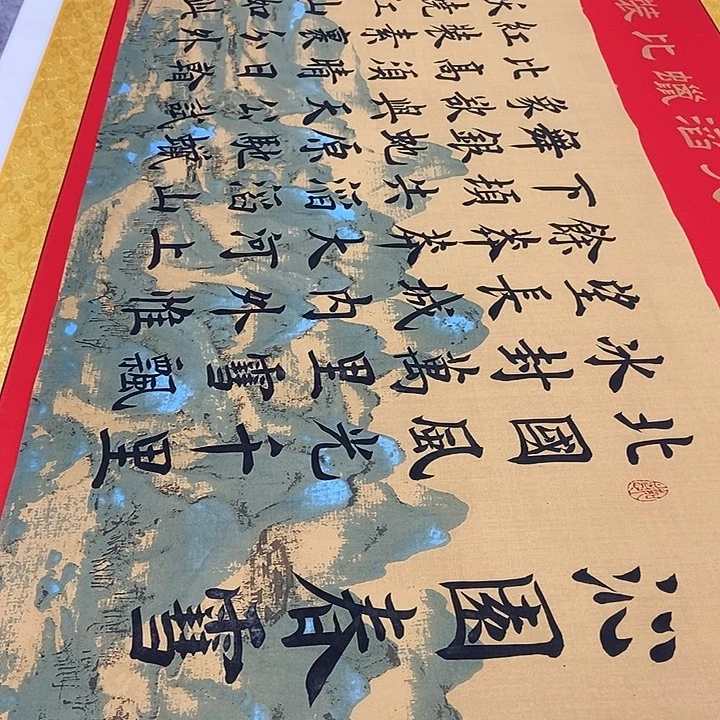 沁園春雪
北國風光千里
冰封萬里雪飄
望長城内外惟
餘莽莽大河上
下頓失滔滔山
舞銀蛇原馳蠟
象欲與天公試
比高須晴日看
紅裝素裹分外
嬈江山如此
大滔蠟比裝